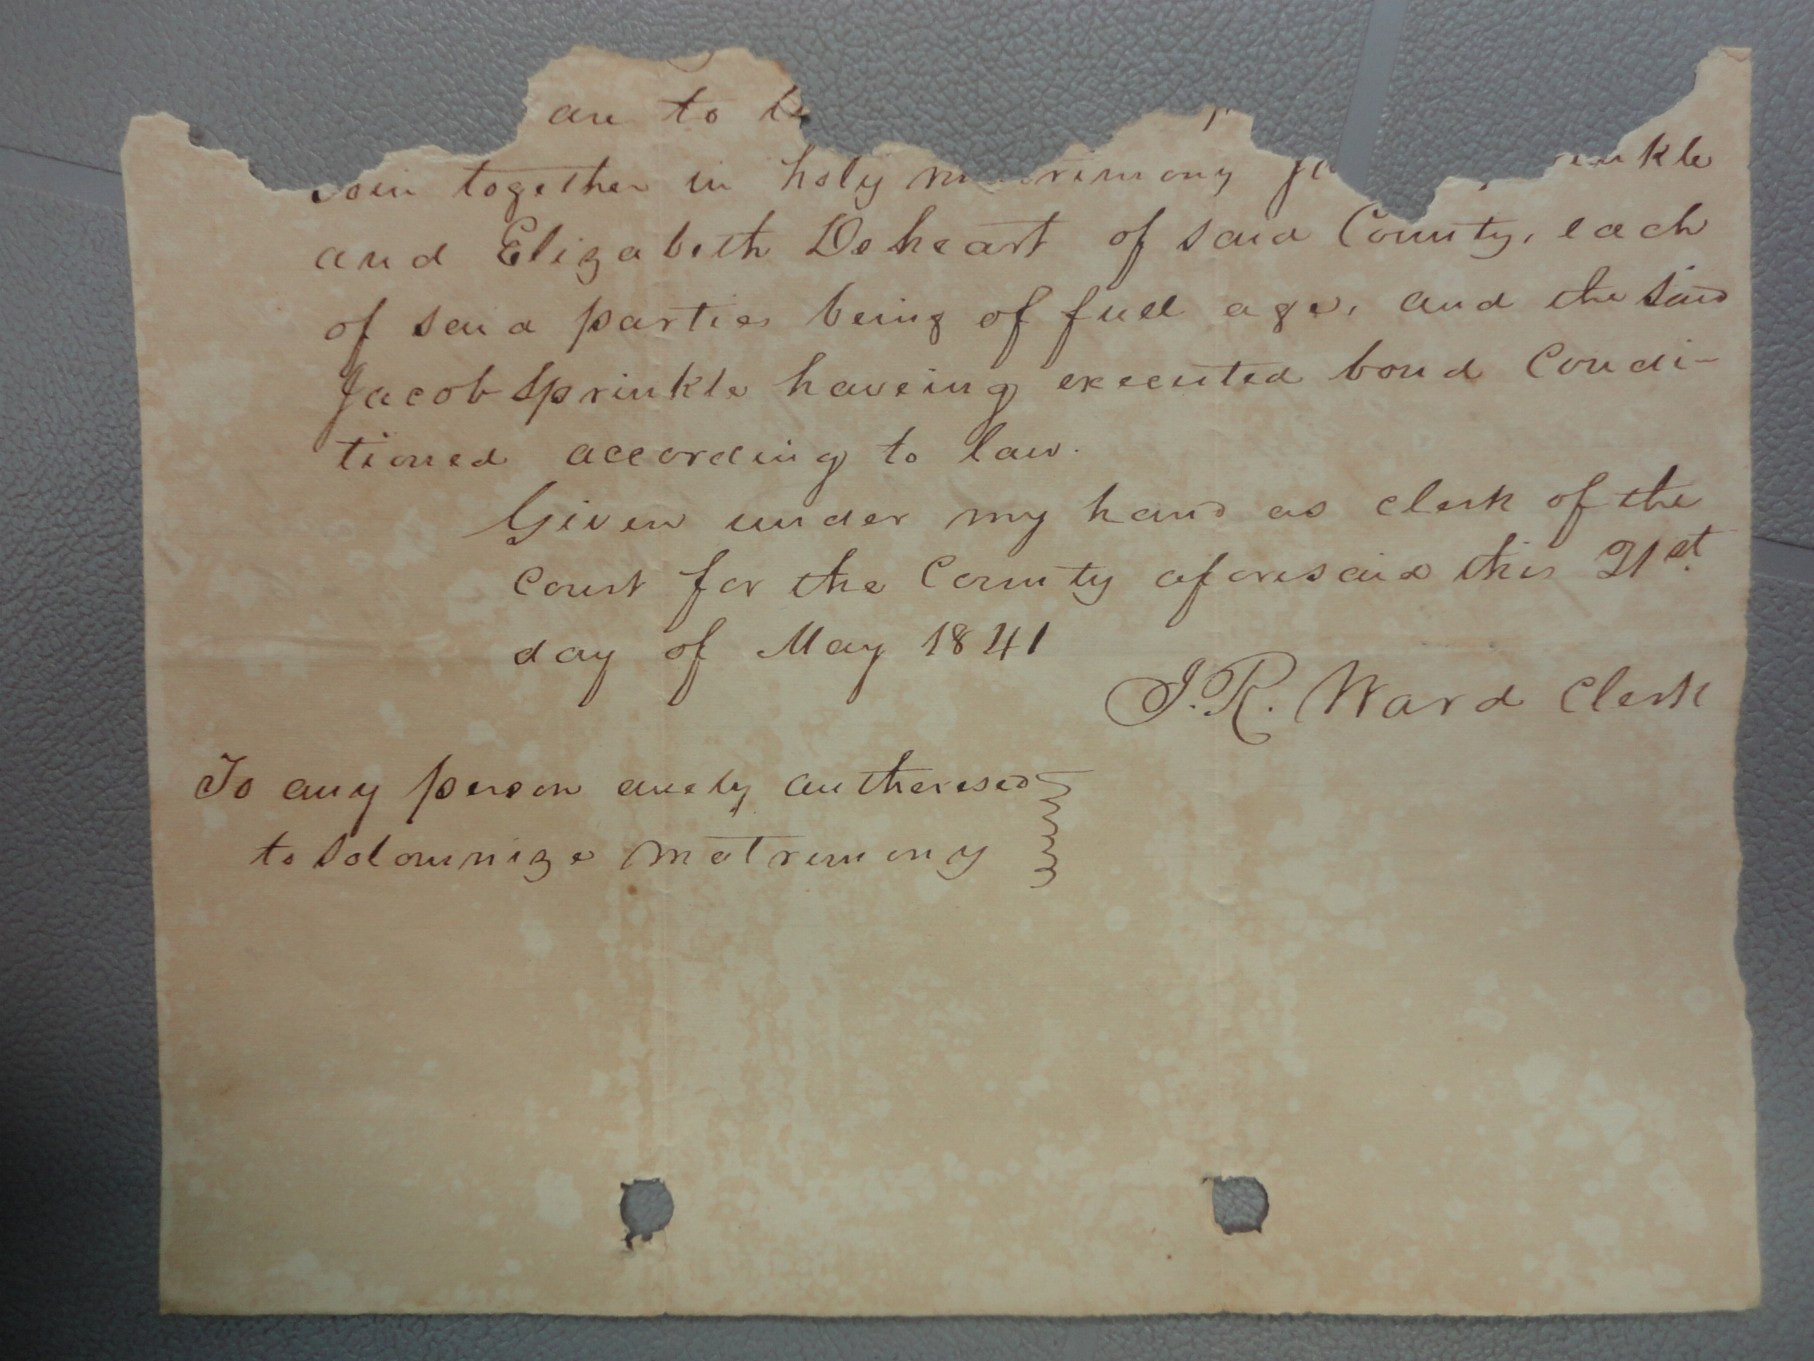 are to
Join together in holy matrimony
and Elizabeth Deheart of said County, each
of said parties being of full age, and the said
Jacob Sprinkle haveing executed bond Condi-
tioned according to law.
Given under my hand as clerk of the
Court for the County aforesaid this 21st
day of May 1841
J. R. Ward Clerk
To any person duely autheresed
to Solomnize matrimony